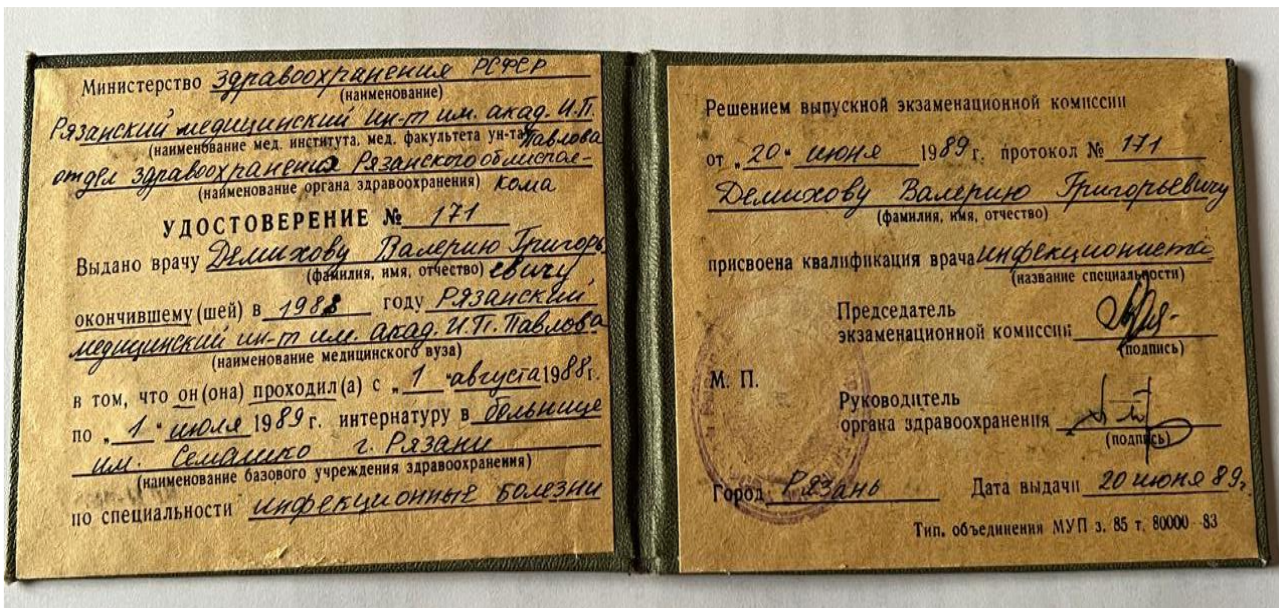 Министерство здравоохранения РСФСР
(наименование)
Рязанский медицинский ин-т им. акад. И.П.
Павлова
(наименование мед. института, мед. факультета ун-та)
отдел здравоохранения Рязанского облиспол-
(наименование органа здравоохранения) кома
УДОСТОВЕРЕНИЕ № 171
Выдано врачу Демихову Валерию Григорь
(фамилия, имя, отчество) евичу
окончившему (шей) в 1988 году Рязанский
медицинский ин-т им. акад. И.П. Павлова
(наименование медицинского вуза)
в том, что он (она) проходил(а) с „1“ августа 1988г.
по „1“ июля 1989 г. интернатуру в больнице
им. Семашко г. Рязани
(наименование базового учреждения здравоохранения)
по специальности инфекционные болезни
Решением выпускной экзаменационной комиссии
от „20“ июня 1989 г. протокол № 171
Демихову Валерию Григорьевичу
(фамилия, имя, отчество)
присвоена квалификация врача инфекциониста
(название специальности)
Председатель
экзаменационной комиссии
(подпись)
М. П.
Руководитель
органа здравоохранения
(подпись)
Город Рязань Дата выдачи 20 июня 89г.
Тип. объединения МУП з. 85 т. 80000—83